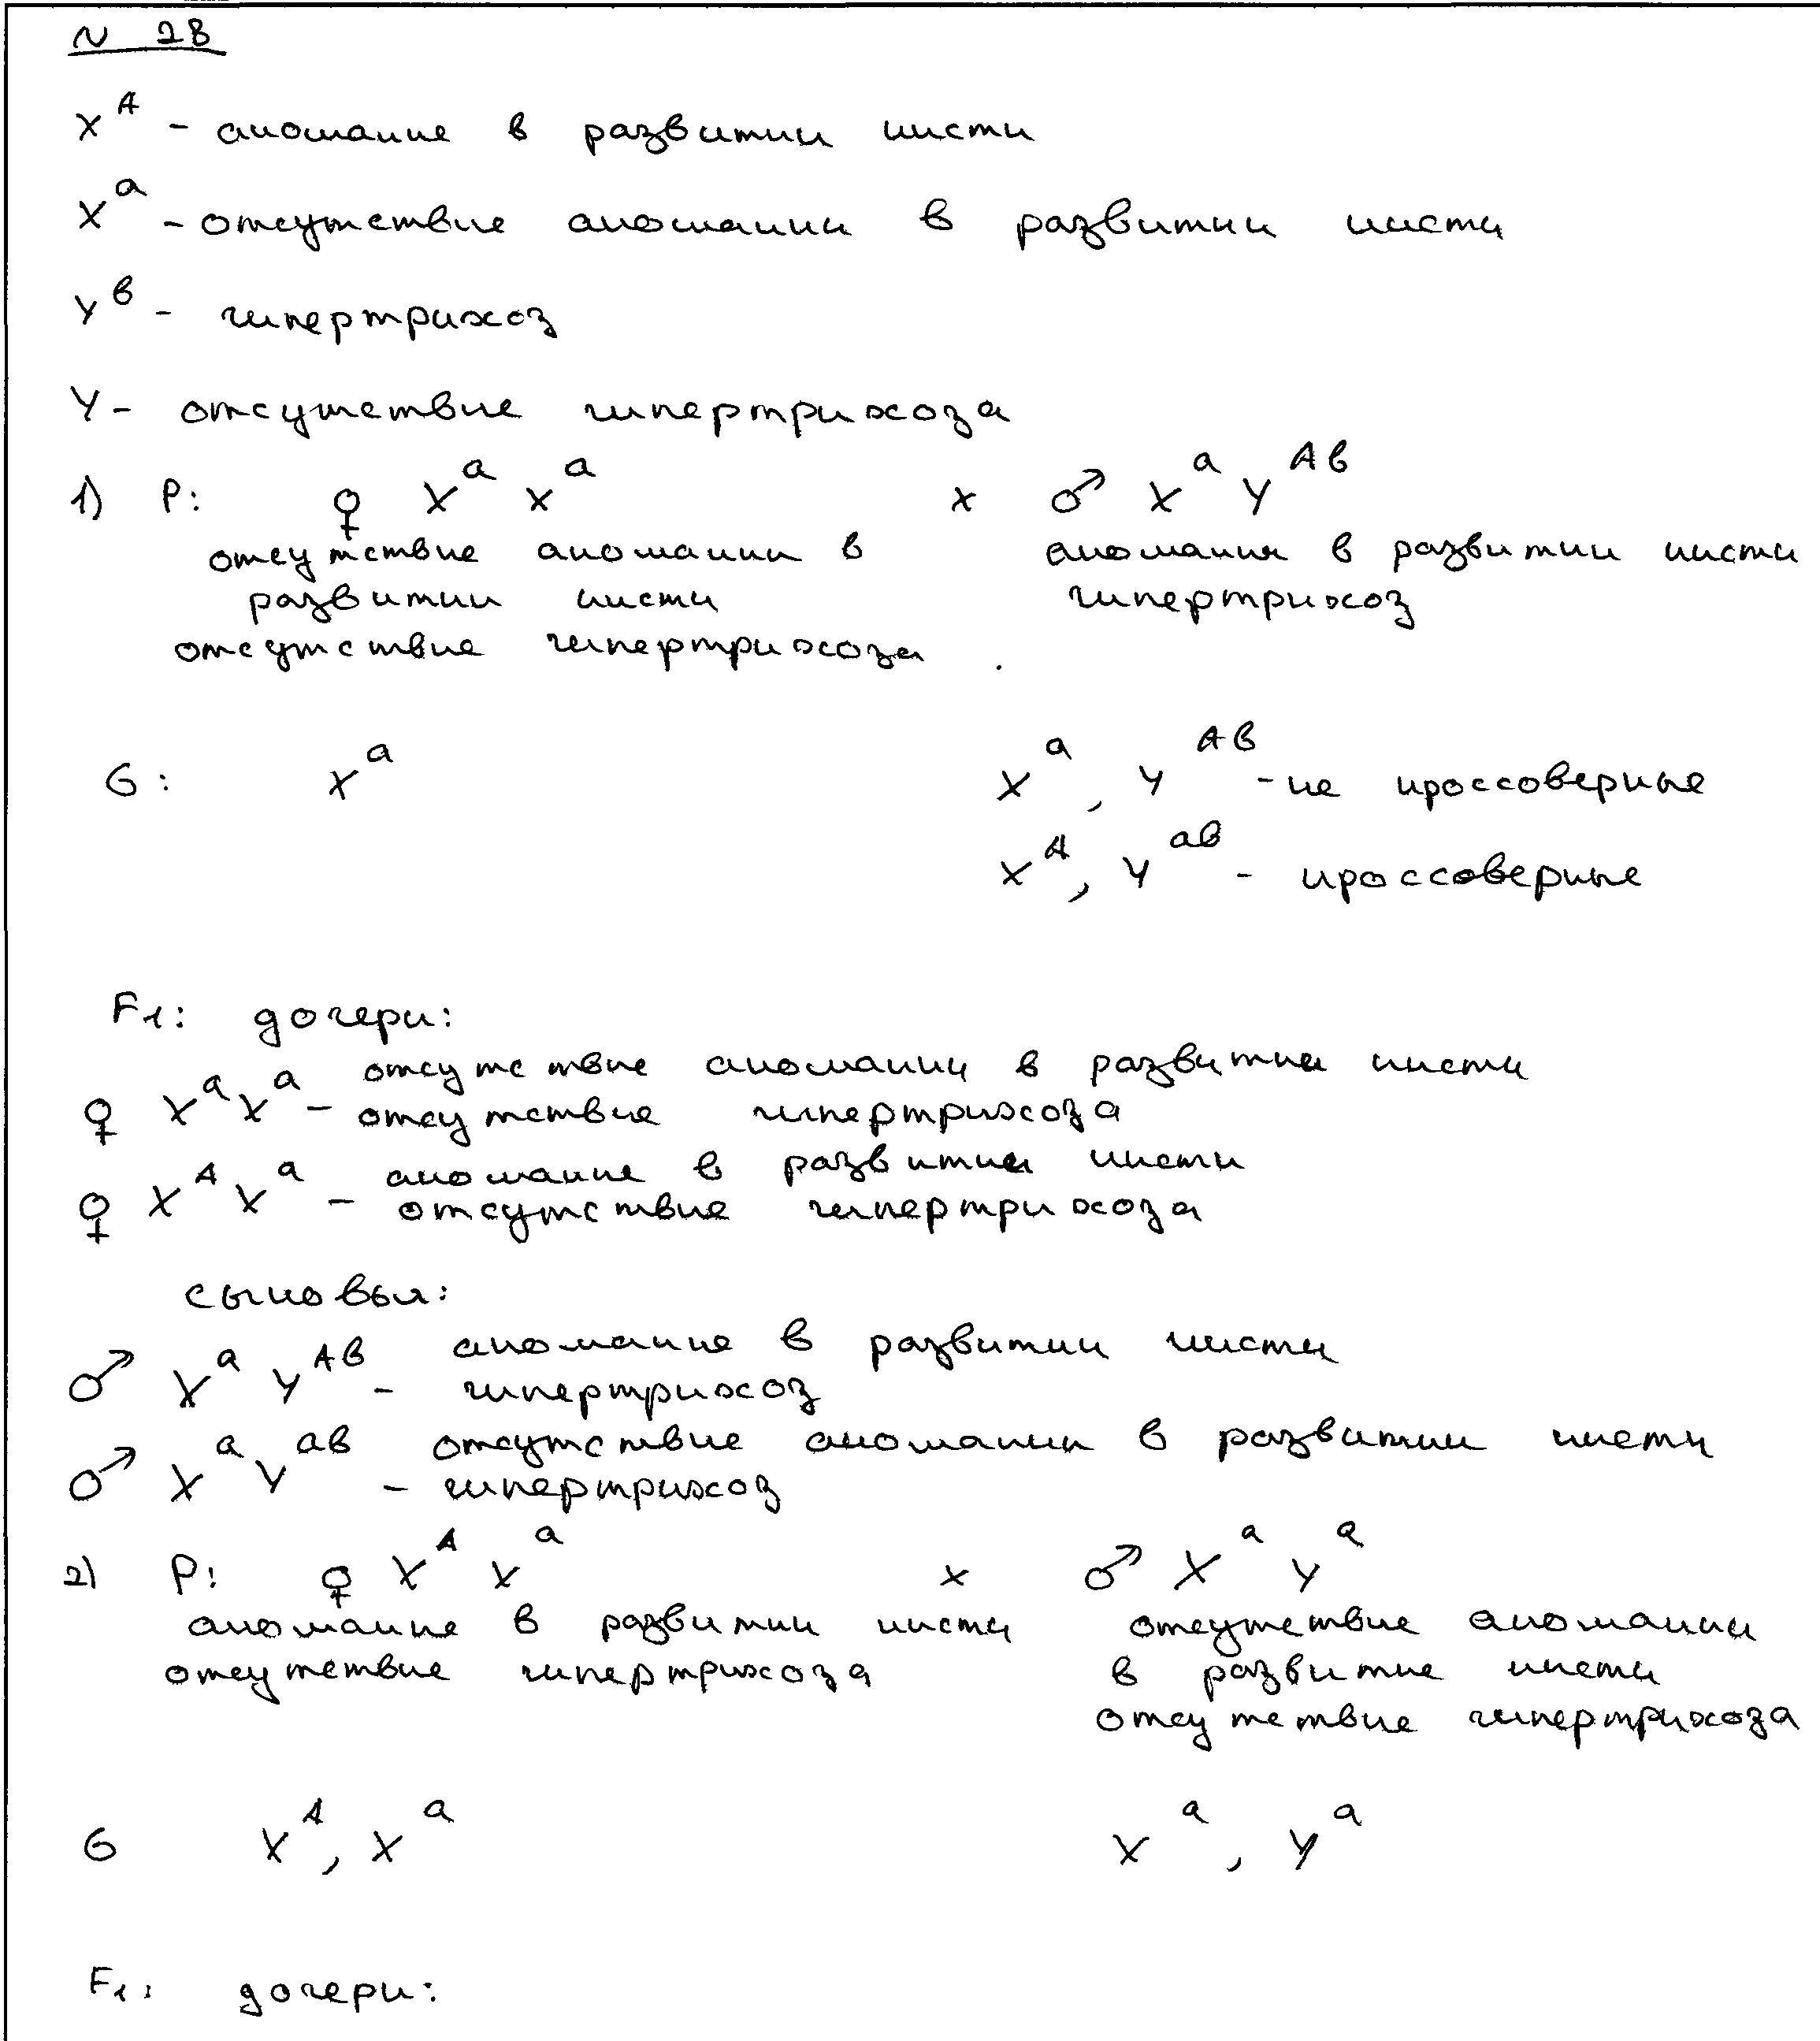 N 28
X^A - аномалие в развитии кисти
X^a - отсутствие аномалии в развитии кисти
Y^в - гипертрихоз
Y - отсутствие гипертрихоза
1) P: ♀ X^a X^a x ♂ X^a Y^Ав
отсутствие аномалии в аномалия в развитии кисти
развитии кисти гипертрихоз
отсутствие гипертрихоза
G: X^a X^a, Y^Ав - не кроссоверные
X^A, Y^ав - кроссоверные
F1: дочери:
отсутствие аномалии в развитии кисти
♀ X^a X^a - отсутствие гипертрихоза
аномалие в развитии кисти
♀ X^A X^a - отсутствие гипертрихоза
сыновья:
аномалие в развитии кисти
♂ X^a Y^Ав - гипертрихоз
отсутствие аномалии в развитии кисти
♂ X^a Y^ав - гипертрихоз
2) P: ♀ X^A X^a x ♂ X^a Y^a
аномалие в развитии кисти отсутствие аномалии
отсутствие гипертрихоза в развитие кисти
отсутствие гипертрихоза
G X^A, X^a X^a, Y^a
F1: дочери: